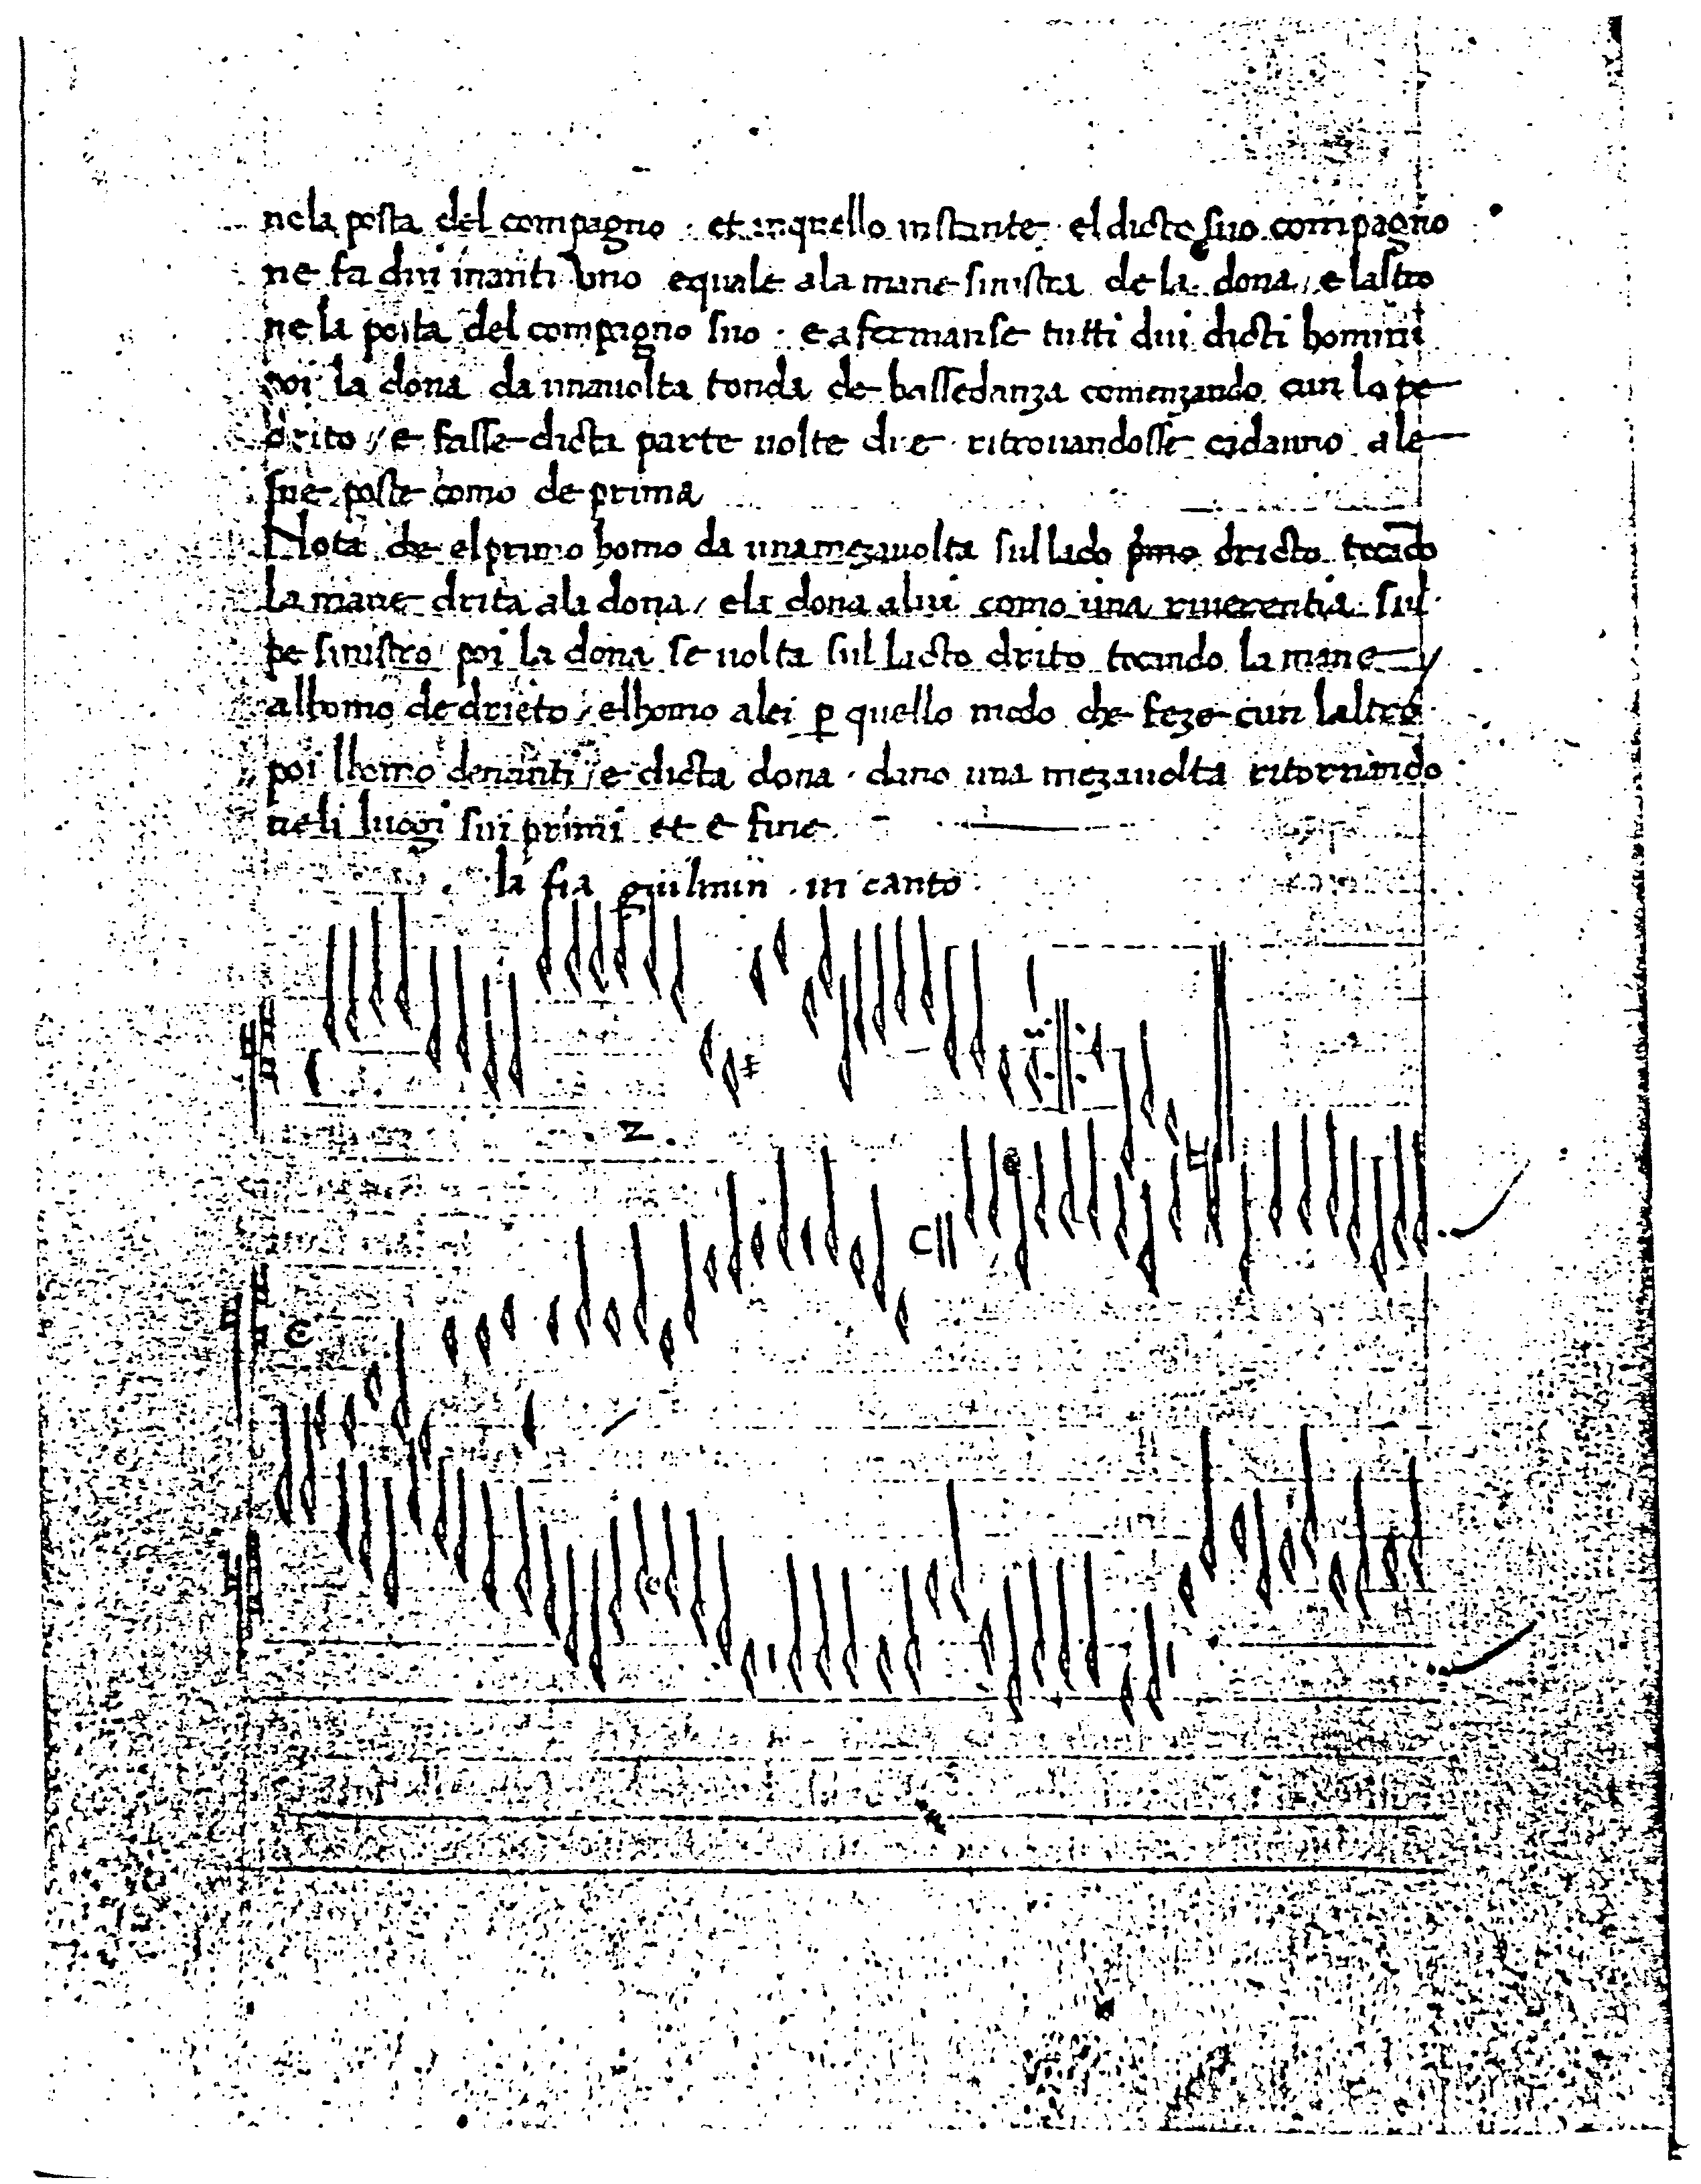 nela posta del compagno · et inquello instante · el dicto suo compagno
ne fa dui inanti uno equale ala mane sinistra de la dona / e lastro
nela posta del compagno suo · e afermanse tutti dui dicti homini
poi la dona da una uolta tonda de bassedanza comenzando cun lo pe
drito / e fasse dicta parte uolte die ritrouandosse cadauno ale
sue poste como de prima
Nota che el primo homo da una mezauolta sul lado dricto tocãdo
la mane drita ala dona / e la dona alui como una riuerentia sul
pe sinistro / poi la dona se uolta sul lacto drito tocando la mane
alhomo dedrieto / elhomo alei ꝑ quello modo che feze cun laltro
poi lhomo denanti / e dicta dona · dano una mezauolta ritornando
neli luogi sui primi et e fine
la fia guilmin · in canto